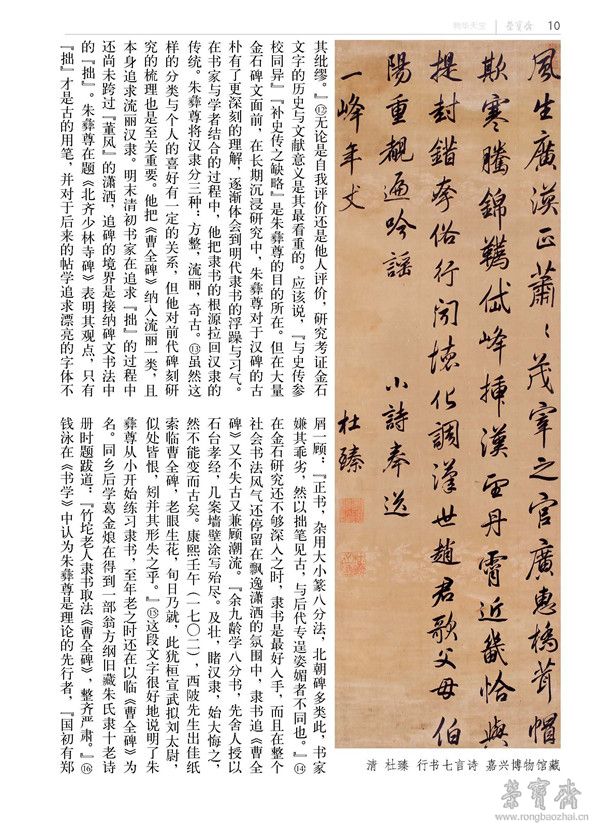 物华天宝
荣宝斋
10
風生廣漠正蕭〻茂宰之官廣惠橋茸帽
欺寒騰錦韉岱峰漢丹霄近畿恰與
提封錯俗行聞化調漢世趙君歌父母伯
陽重觀遍吟謠 小詩奉送
一峰年丈 杜臻
清 杜臻 行书七言诗 嘉兴博物馆藏
其纰缪。』⑫无论是自我评价还是他人评价，研究考证金石
文字的历史与文献意义是其最看重的。应该说，『与史传参
校同异』『补史传之缺略』是朱彝尊的目的所在。但在大量
金石碑文面前，在长期沉浸研究中，朱彝尊对于汉碑的古
朴有了更深刻的理解，逐渐体会到明代隶书的浮躁与习气。
在书家与学者结合的过程中，他把隶书的根源拉回汉隶的
传统。朱彝尊将汉隶分三种：方整，流丽，奇古。⑬虽然这
样的分类与个人的喜好有一定的关系，但他对前代碑刻研
究的梳理也是至关重要。他把《曹全碑》纳入流丽一类，且
本身追求流丽汉隶。明末清初书家在追求『拙』的过程中
还尚未跨过『董风』的潇洒，追碑的境界是接纳碑文书法中
的『拙』。朱彝尊在题《北齐少林寺碑》表明其观点，只有
『拙』才是古的用笔，并对于后来的帖学追求漂亮的字体不
屑一顾：『正书，杂用大小篆八分法，北朝碑多类此，书家
嫌其乖劣，然以拙笔见古，与后代专逞姿媚者不同也。』⑭
在金石研究还不够深入之时，隶书是最好入手，而且在整个
社会书法风气还停留在飘逸潇洒的氛围中，隶书追《曹全
碑》又不失古又兼顾潮流。『余九龄学八分书，先舍人授以
石台孝经，几案墙壁涂写殆尽。及壮，睹汉隶，始大悔之，
然不能变而古矣。康熙壬午（一七〇二），西陂先生出佳纸
索临曹全碑，老眼生花，旬日乃就，此犹桓宣武拟刘太尉，
似处皆恨，矧并其形失之乎。』⑮这段文字很好地说明了朱
彝尊从小开始练习隶书，至年老之时还在以临《曹全碑》为
名。同乡后学葛金烺在得到一部翁方纲旧藏朱氏隶十老诗
册时题跋道：『竹垞老人隶书取法《曹全碑》，整齐严肃。』⑯
钱泳在《书学》中认为朱彝尊是理论的先行者，『国初有郑
荣宝斋
www.rongbaozhai.cn